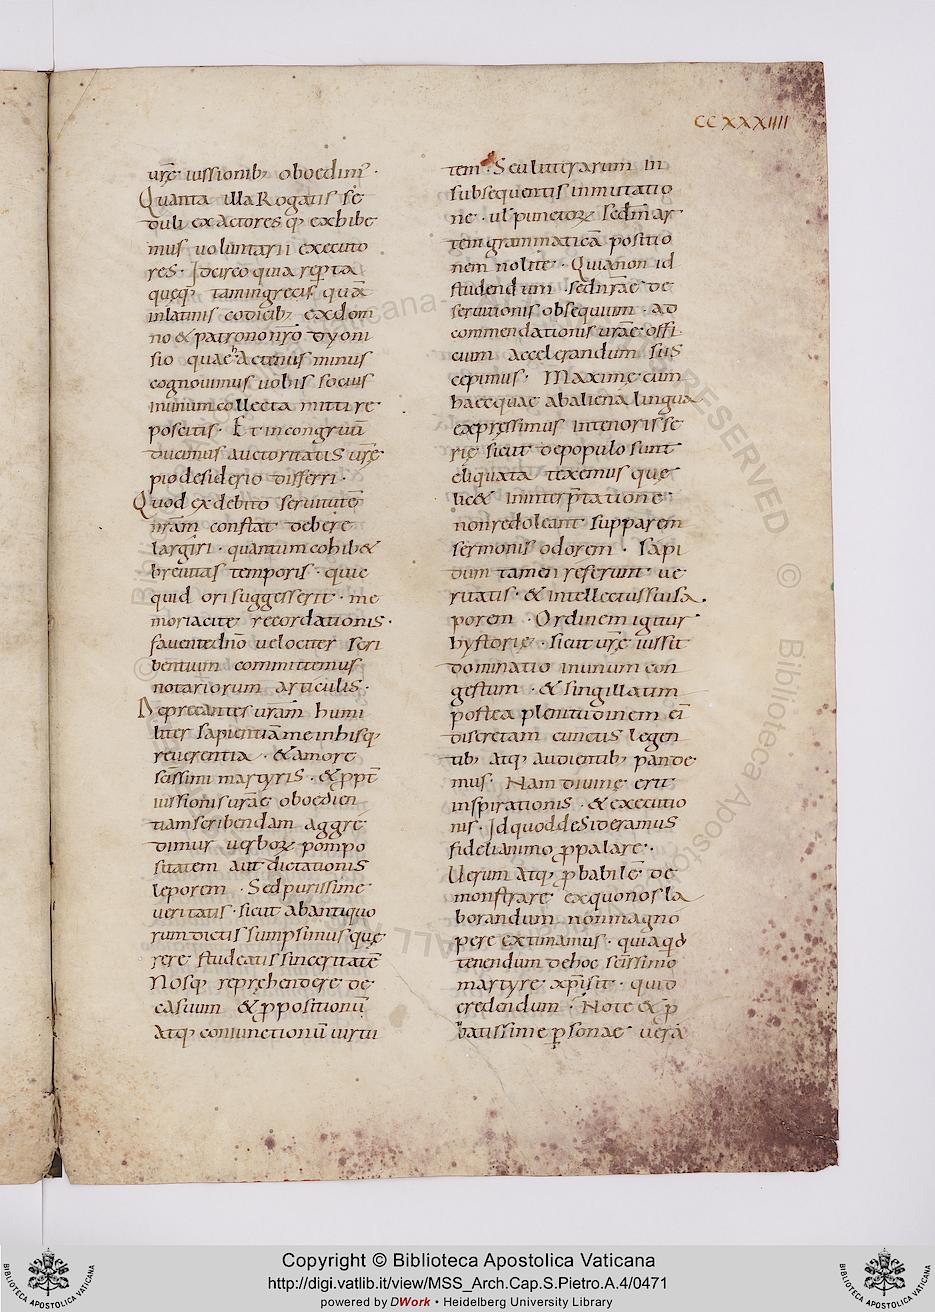 CCXXXIIII
urȩ̄ iussionib; oboedim᷒ ·
Quanta illa Rogatis se
duli exactores q; exhibe
mus uoluntarii executo
res · Idcirco quia repta
queq; tamingrecis quā
inlatinis codicib; exdom
no & patrono nr̄o dyoni
sio quae hactenus minus
cognouimus uobis socius
inunum collecta mittire
poscitis · Et incongruū
ducimus auctoritatis urȩ̄
pio desiderio differri ·
Quod ex debito seruitutē
nr̄am constat debere
largiri · quantum cohib&
breuitas temporis · quic
quid ori suggesserit · me
moriacite recordationis ·
fauente dn̄o uelociter scri
bentium committemus
notariorum articulis ·
Deprecantes ur̄am humi
liter sapientiam e inhisq;
reuerentia · & amore
sc̄issimi martyris · & ppt̄
iussionis ur̄ae oboedien
tiam scribendam aggre
dimur uerboꝝ pompo
sitatem aut dictationis
leporem · Sed purissime
ueritatis · sicut ab antiquo
rum dictis sumpsimus que
rere studeatis sinceritatē
Nosq; reprehendere de
casuum & ppositionū
Atq; coniunctionū uirtu
tem · Seu litterarum in
subsequentis inmutatio
ne · uel punctoꝝ sedm̄ ar
tem grammaticā positio
nem nolite · Quia non id
studendum · sed nr̄ae de
seruitionis obsequium · ad
commendationis ur̄ae offi
cium accelerandum sus
cepimus · Maxime cum
haec quae ab aliena lingua
expressimus interioris se
rie sicut de populo sunt
eliquata texemus que
lic& ininterp̄tatione ·
non redoleant supparem
sermonis odorem · sapi
dum tamen referunt ue
ritatis · & intellectus suisa ·
porem · Ordinem igitur
hystorie · sicut urȩ̄ iussit
dominatio inunum con
gestum · & singillatim
postea plenitudinem ei᷒
discretam cunctis legen
tib; atq; audientib; pande
mus · Nam diuine erit
inspirationis · & executio
nis · Id quod desideramus
fideli animo ꝓpalare ·
Uerum Atq; ꝓbabile de
monstrare ex quo nos la
borandum non magno
pere extimamus · quia qd̄
tenendum de hoc sc̄issimo
martyre xp̄isit · quid
credendum · Note & ꝓ
batissime psonae uera
Copyright © Biblioteca Apostolica Vaticana
http://digi.vatlib.it/view/MSS_Arch.Cap.S.Pietro.A.4/0471
powered by DWork • Heidelberg University Library